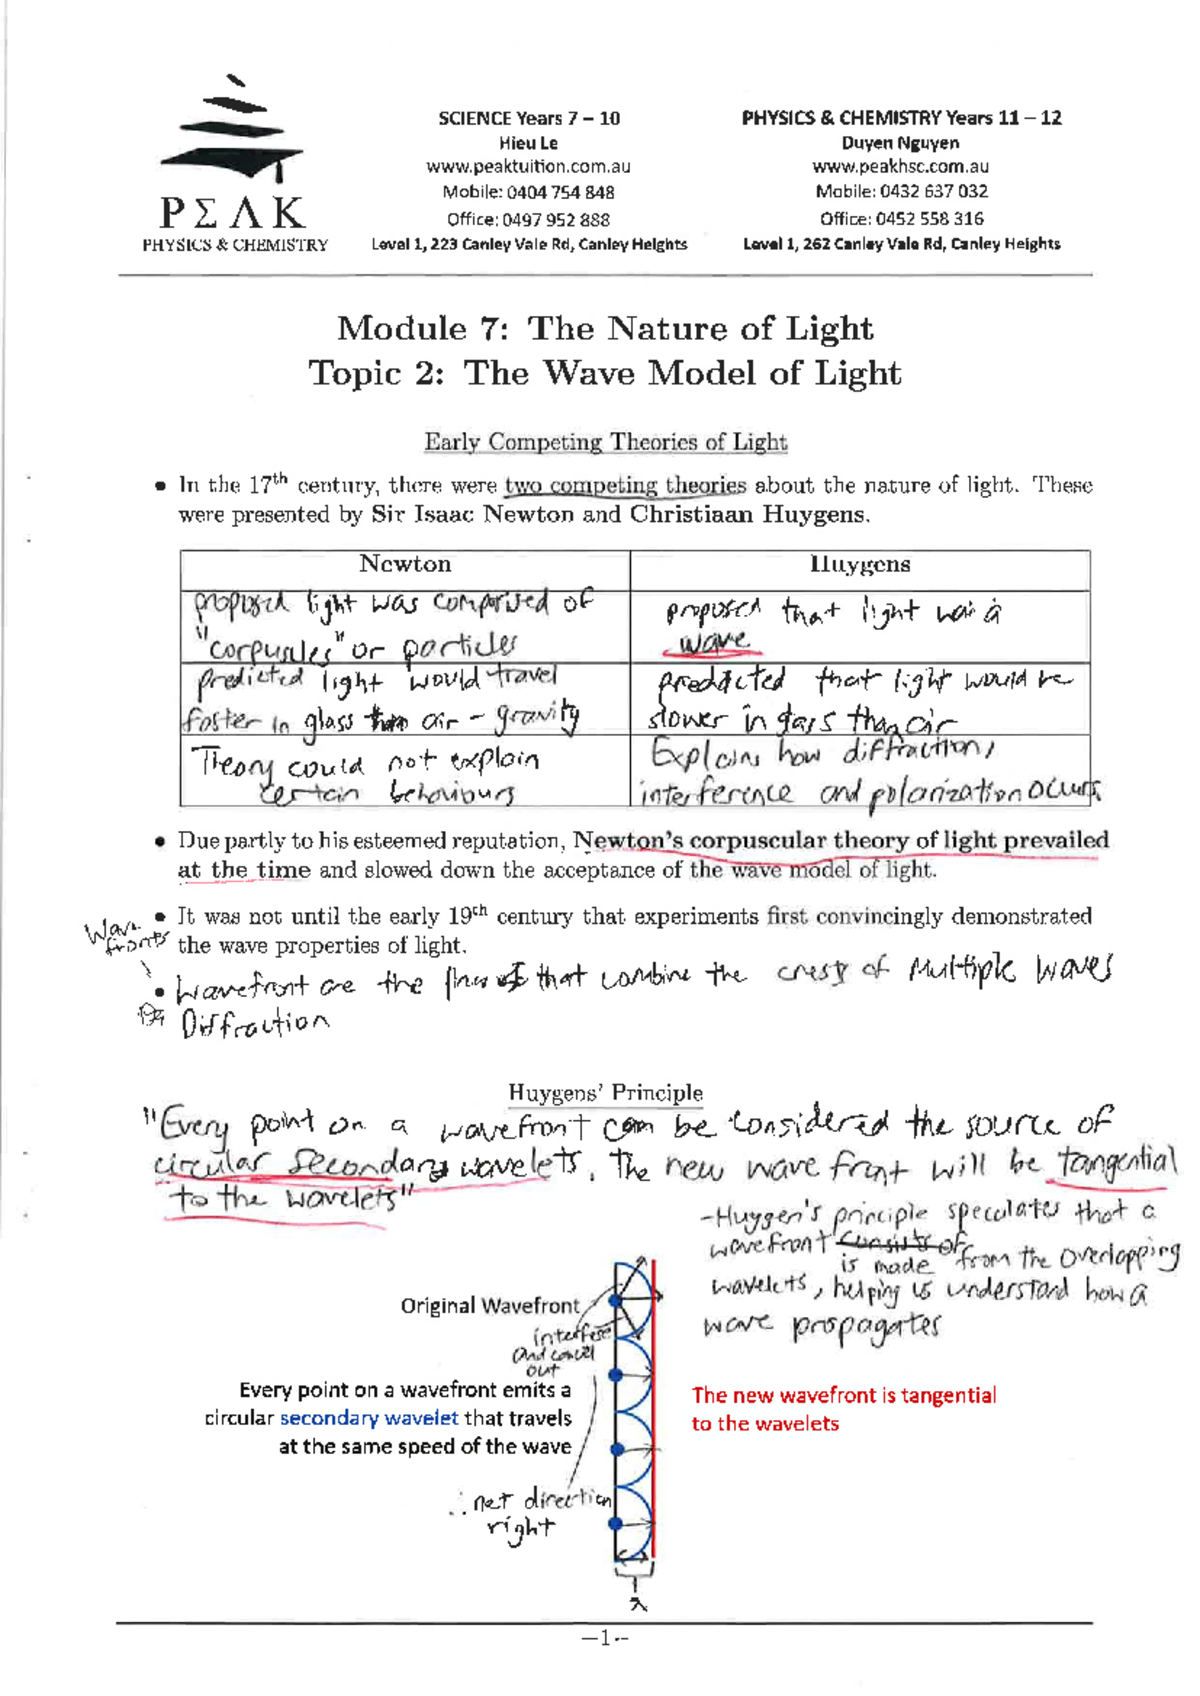 SCIENCE Years 7 – 10
Hieu Le
www.peaktuition.com.au
Mobile: 0404 754 848
Office: 0497 952 888
Level 1, 223 Canley Vale Rd, Canley Heights
PHYSICS & CHEMISTRY Years 11 – 12
Duyen Nguyen
www.peakhsc.com.au
Mobile: 0432 637 032
Office: 0452 558 316
Level 1, 262 Canley Vale Rd, Canley Heights
PΣΛK
PHYSICS & CHEMISTRY
Module 7: The Nature of Light
Topic 2: The Wave Model of Light
Early Competing Theories of Light
• In the 17th century, there were two competing theories about the nature of light. These
were presented by Sir Isaac Newton and Christiaan Huygens.
Newton
Huygens
proposed light was comprised of
"corpuscles" or particles
proposed that light was a
wave
predicted light would travel
faster in glass than air - gravity
predicted that light would be
slower in glass than air
Theory could not explain
certain behaviours
Explains how diffraction,
interference and polarization occurs
• Due partly to his esteemed reputation, Newton's corpuscular theory of light prevailed
at the time and slowed down the acceptance of the wave model of light.
• It was not until the early 19th century that experiments first convincingly demonstrated
the wave properties of light.
Wave
fronts
• Wavefront are the that combine the crests of Multiple waves
Diffraction
Huygens' Principle
"Every point on a wavefront can be considered the source of
circular secondary wavelets. The new wave front will be tangential
to the wavelets"
-Huygen's principle speculates that a
wavefront consists of
is made from the overlapping
wavelets, helping us understand how a
wave propagates
Original Wavefront
interfere
and cancel
out
Every point on a wavefront emits a
circular secondary wavelet that travels
at the same speed of the wave
The new wavefront is tangential
to the wavelets
∴ net direction
right
λ
–1–